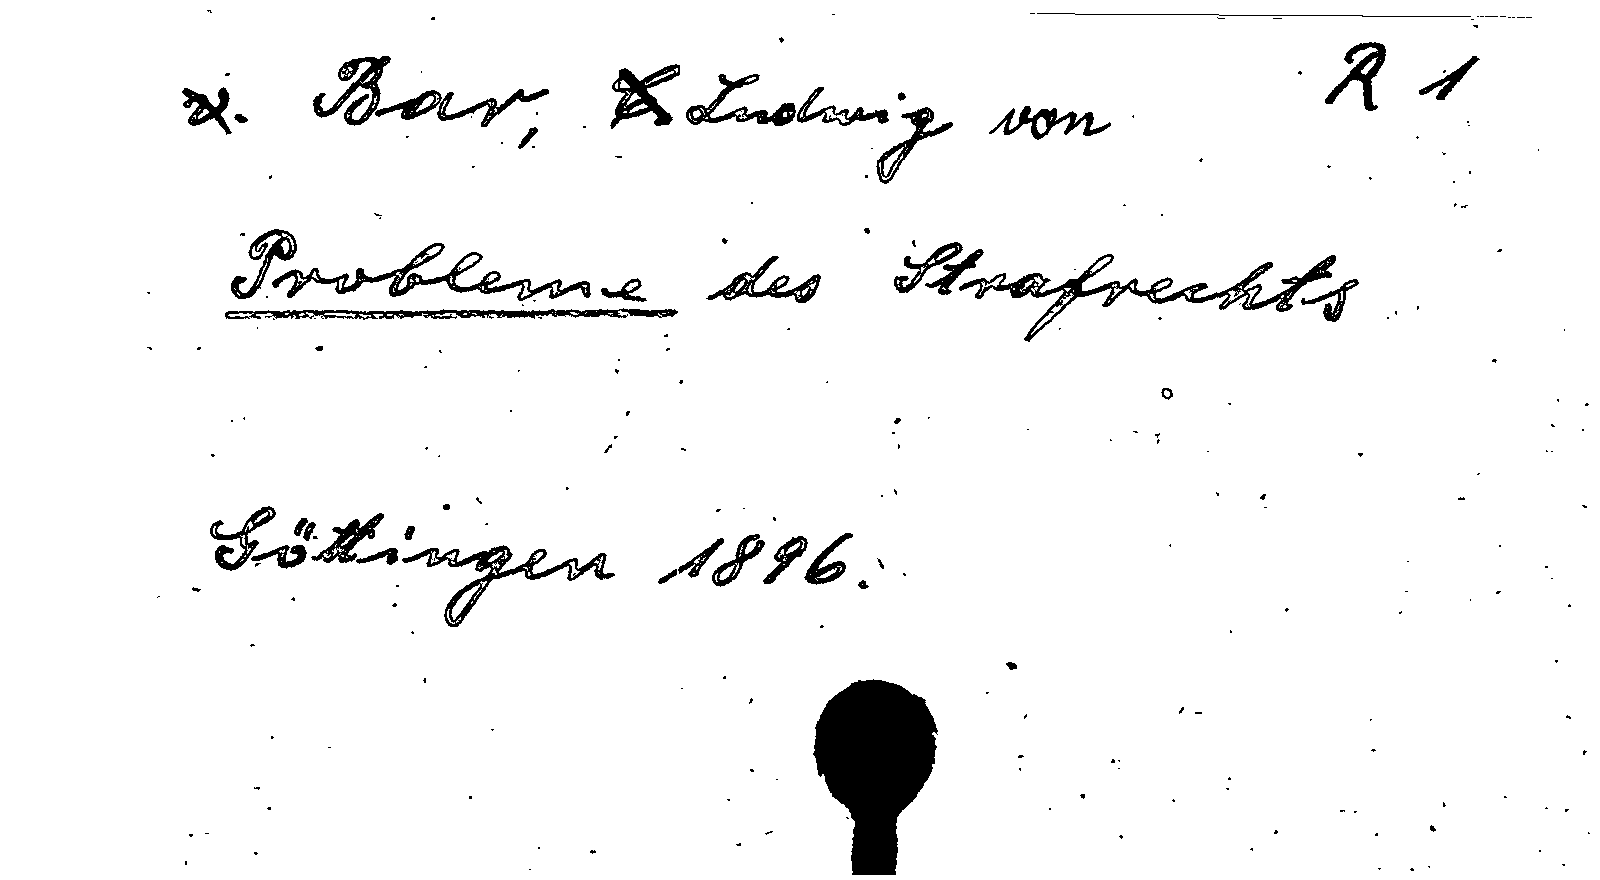 Bar, Ludwig von R 1
Probleme des Strafrechts
Göttingen 1896.